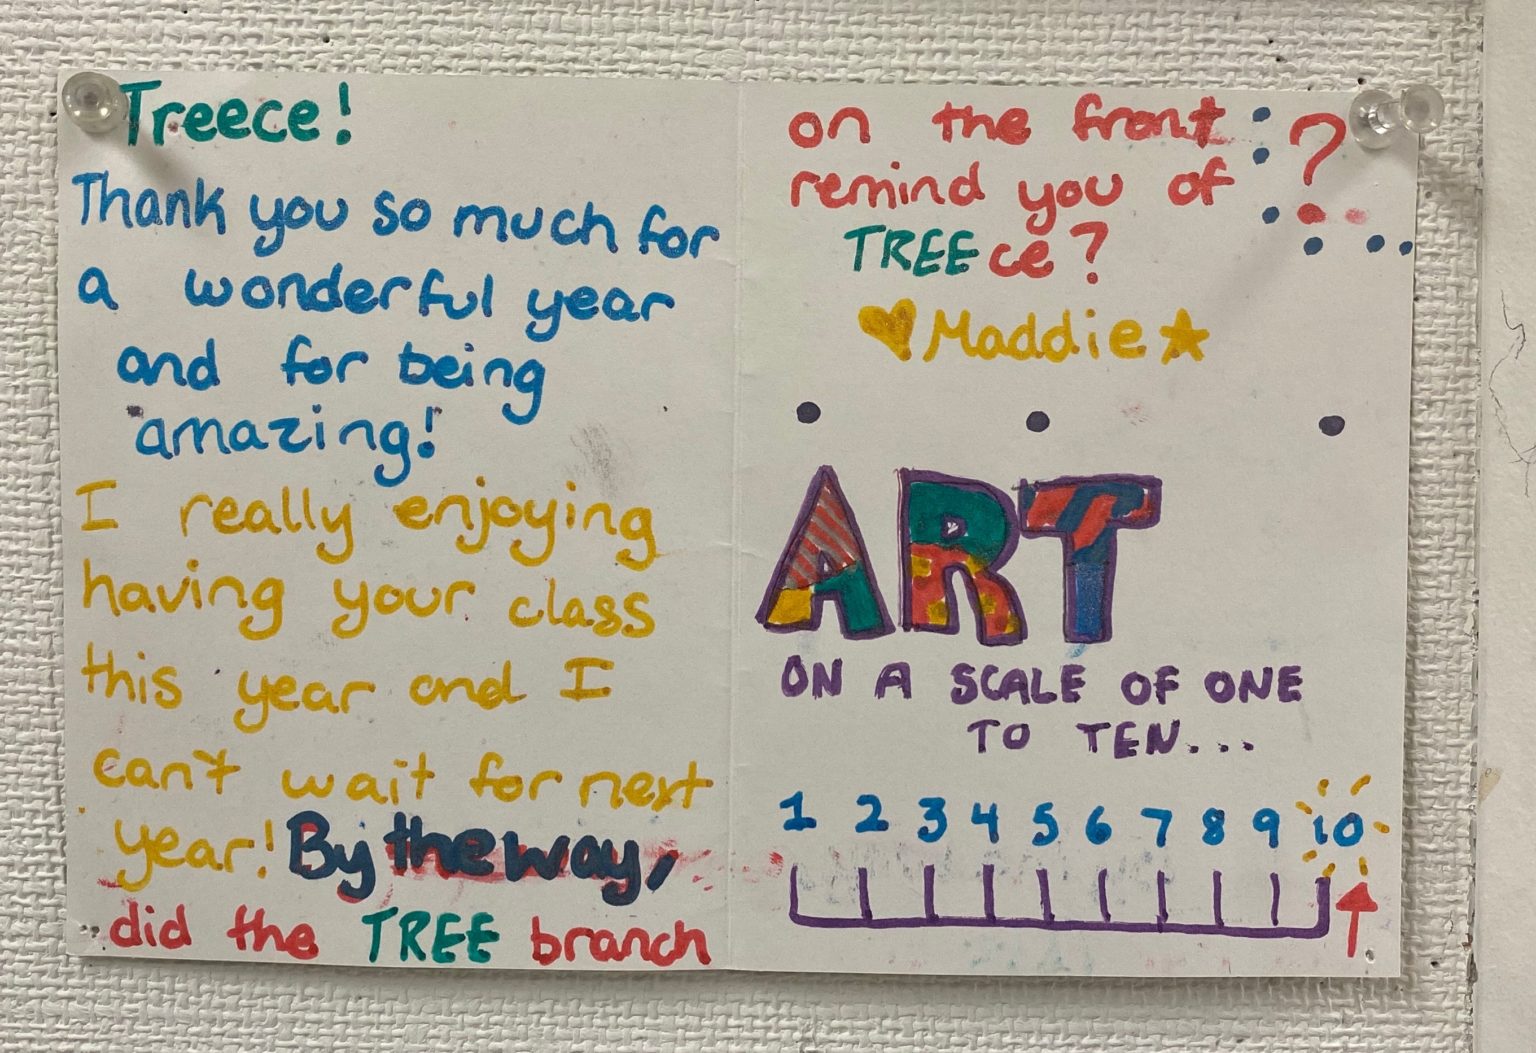 Treece!
Thank you so much for
a wonderful year
and for being
amazing!
I really enjoying
having your class
this year and I
can't wait for next
year! By the way,
did the TREE branch
on the front
remind you of ?
TREEce?
Maddie
ART
ON A SCALE OF ONE
TO TEN...
1 2 3 4 5 6 7 8 9 10